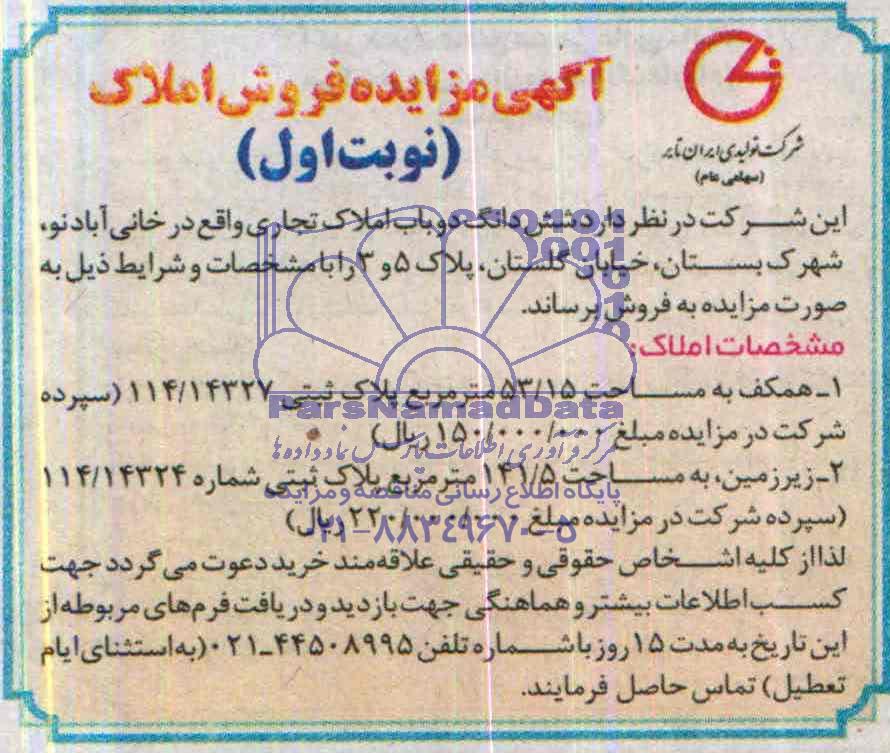 آگهی مزایده فروش املاک
(نوبت اول)
شرکت تولیدی ایران تایر
(سهامی عام)
این شرکت در نظر دارد شش دانگ دو باب املاک تجاری واقع در خانی آباد نو،
شهرک بستان، خیابان گلستان، پلاک ۵ و ۳ را با مشخصات و شرایط ذیل به
صورت مزایده به فروش برساند.
مشخصات املاک:
۱ـ همکف به مساحت ۵۳/۱۵ مترمربع پلاک ثبتی ۱۱۴/۱۴۳۲۷ (سپرده
شرکت در مزایده مبلغ ۱۵۰/۰۰۰/۰۰۰ ریال)
۲ـ زیرزمین، به مساحت ۱۴۱/۵ مترمربع پلاک ثبتی شماره ۱۱۴/۱۴۳۲۴
(سپرده شرکت در مزایده مبلغ ۲۲۰/۰۰۰/۰۰۰ ریال)
لذا از کلیه اشخاص حقوقی و حقیقی علاقه‌مند خرید دعوت می گردد جهت
کسب اطلاعات بیشتر و هماهنگی جهت بازدید و دریافت فرم‌های مربوطه از
این تاریخ به مدت ۱۵ روز با شماره تلفن ۴۴۵۰۸۹۹۵ـ۰۲۱ (به استثنای ایام
تعطیل) تماس حاصل فرمایند.
ParsNamadData
مرکز فرآوری اطلاعات پارس نماد داده ها
پایگاه اطلاع رسانی مناقصه و مزایده
۰۲۱-۸۸۳۴۹۶۷۰-۵